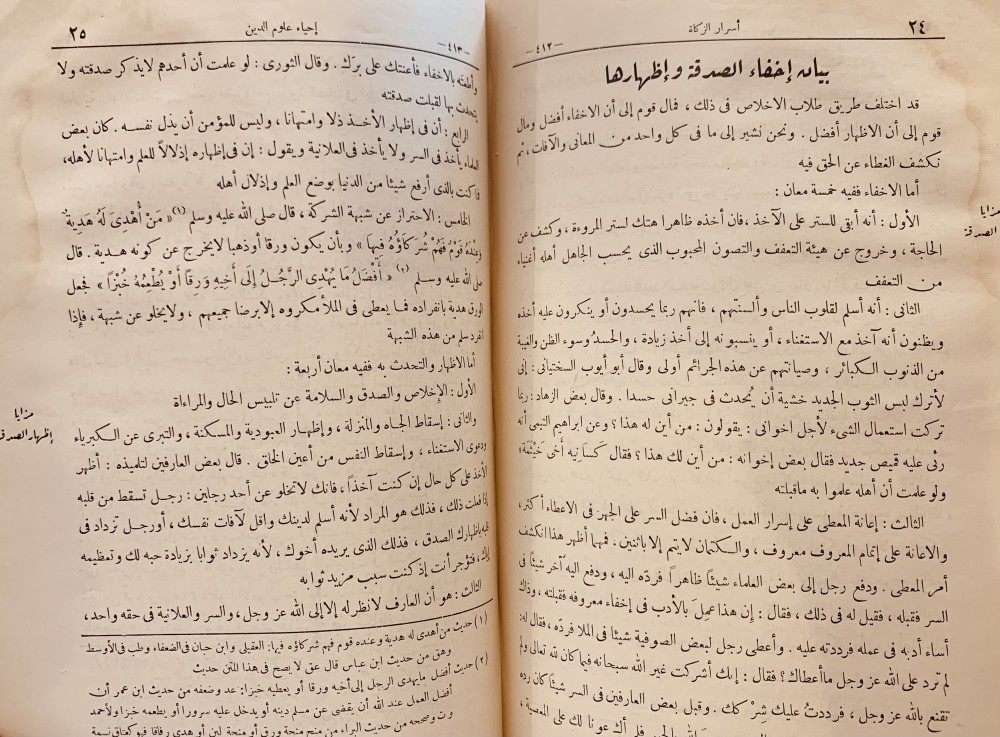 ٢٤
أسرار الزكاة
—٤١٢—
بيان إخفاء الصدقة وإظهارها
قد اختلف طريق طلاب الاخلاص فى ذلك ، فمال قوم إلى أن الاخفاء أفضل ومال
قوم إلى أن الاظهار أفضل . ونحن نشير إلى ما فى كل واحد من المعانى والآفات ، ثم
نكشف الغطاء عن الحق فيه
أما الاخفاء ففيه خمسة معان :
الأول : أنه أبقى للستر على الآخذ ، فان أخذه ظاهرا هتك لستر المروءة ، وكشف عن
الحاجة ، وخروج عن هيئة التعفف والتصون المحبوب الذى يحسب الجاهل أهله أغنياء
من التعفف
مزايا
الصدقة
الثانى : أنه أسلم لقلوب الناس وألسنتهم ، فانهم ربما يحسدون أو ينكرون عليه أخذه
ويظنون أنه آخذ مع الاستغناء ، أو ينسبونه إلى أخذ زيادة ، والحسد وسوء الظن والغيبة
من الذنوب الكبائر ، وصيانتهم عن هذه الجرائم أولى وقال أبو أيوب السختيانى : إنى
لأترك لبس الثوب الجديد خشية أن يُحدث فى جيرانى حسدا . وقال بعض الزهاد : ربما
تركت استعمال الشىء لأجل اخوانى : يقولون : من أين له هذا ؟ وعن ابراهيم التيمى أنه
رئى عليه قميص جديد فقال بعض إخوانه : من أين لك هذا ؟ فقال كسانيه أخى خيثمة ،
ولو علمت أن أهله علموا به ماقبلته
الثالث : إعانة المعطى على إسرار العمل ، فان فضل السر على الجهر فى الاعطاء أكثر ،
والاعانة على إتمام المعروف معروف ، والكتمان لايتم إلا باثنين . فمهما أظهر هذا انكشف
أمر المعطى . ودفع رجل إلى بعض العلماء شيئًا ظاهرًا فردّه اليه ، ودفع اليه آخر شيئًا فى
السر فقبله ، فقيل له فى ذلك ، فقال : إن هذا عمِلَ بالأدب فى إخفاء معروفه فقبلته ، وذاك
أساء أدبه فى عمله فرددته عليه . وأعطى رجل لبعض الصوفية شيئا فى الملا فردّه ، فقال له :
لم ترد على الله عز وجل ماأعطاك ؟ فقال : إنك أشركت غير الله سبحانه فيما كان لله تعالى ولم
تقنع بالله عز وجل ، فرددتُ عليك شِرْكك . وقبل بعض العارفين فى السر شيئا كان رده
الله بالجهر فلم أك عونا لك على المعصية ،
٢٥
إحياء علوم الدين
—٤١٣—
وأطعته بالاخفاء فأعنتك على برّك . وقال الثورى : لو علمت أن أحدهم لايذكر صدقته ولا
يتحدث بها لقبلت صدقته
الرابع : أن فى إظهار الأخذ ذلا وامتهانا ، وليس للمؤمن أن يذل نفسه . كان بعض
العلماء يأخذ فى السر ولا يأخذ فى العلانية ويقول : إن فى إظهاره إذلالاً للعلم وامتهانا لأهله ،
فما كنت بالذى أرفع شيئا من الدنيا بوضع العلم وإذلال أهله
الخامس : الاحتراز عن شبهة الشركة ، قال صلى الله عليه وسلم (١) « مَنْ أُهْدِىَ لَهُ هَدِيةٌ
وَعِنْدَهُ قَوْمٌ فَهُمْ شُرَكَاؤُهُ فِيهَا » وبأن يكون ورقا أوذهبا لايخرج عن كونه هدية . قال
صلى الله عليه وسلم (٢) « أَفْضَلُ مَا يُهْدِى الرَّجُلُ إِلَى أَخِيهِ وَرِقًا أَوْ يُطْعِمُهُ خُبْزًا » فجعل
الورق هدية بانفراده فما يعطى فى الملأ مكروه إلا برضا جميعهم ، ولايخلو عن شبهة ، فإذا
انفرد سلم من هذه الشبهة
أما الاظهار والتحدث به ففيه معان أربعة :
الأول : الإخلاص والصدق والسلامة عن تلبيس الحال والمراءاة
مزايا
إظهار الصدقة
والثانى : إسقاط الجاه والمنزلة ، وإظهار العبودية والمسكنة ، والتبرى عن الكبرياء
ودعوى الاستغناء ، وإسقاط النفس من أعين الخلق . قال بعض العارفين لتلميذه : أظهر
الأخذ على كل حال إن كنت آخذًا ، فانك لاتخلو عن أحد رجلين : رجل تسقط من قلبه
إذا فعلت ذلك ، فذلك هو المراد لأنه أسلم لدينك واقل لآفات نفسك ، أورجل تزداد فى
قلبه باظهارك الصدق ، فذلك الذى يريده أخوك ، لأنه يزداد ثوابا بزيادة حبه لك وتعظيمه
إياك ، فتؤجر أنت إذ كنت سبب مزيد ثوابه
الثالث : هو أن العارف لانظر له إلا إلى الله عز وجل ، والسر والعلانية فى حقه واحد ،
(١) حديث من أهدى له هدية وعنده قوم فهم شركاؤه فيها : العقيلى وابن حبان فى الضعفاء وطب فى الأوسط
وهق من حديث ابن عباس قال عق لا يصح فى هذا المتن حديث
(٢) حديث أفضل مايهدى الرجل إلى أخيه ورقا أو يعطيه خبزا : عد وضعفه من حديث ابن عمر أن
أفضل العمل عند الله أن يقضى عن مسلم دينه أو يدخل عليه سرورا أو يطعمه خبزا ولأحمد
وت وصححه من حديث البراء من منح منحة ورق أو منحة لبن أو هدى رقاقا فهو كعتاق نسمة